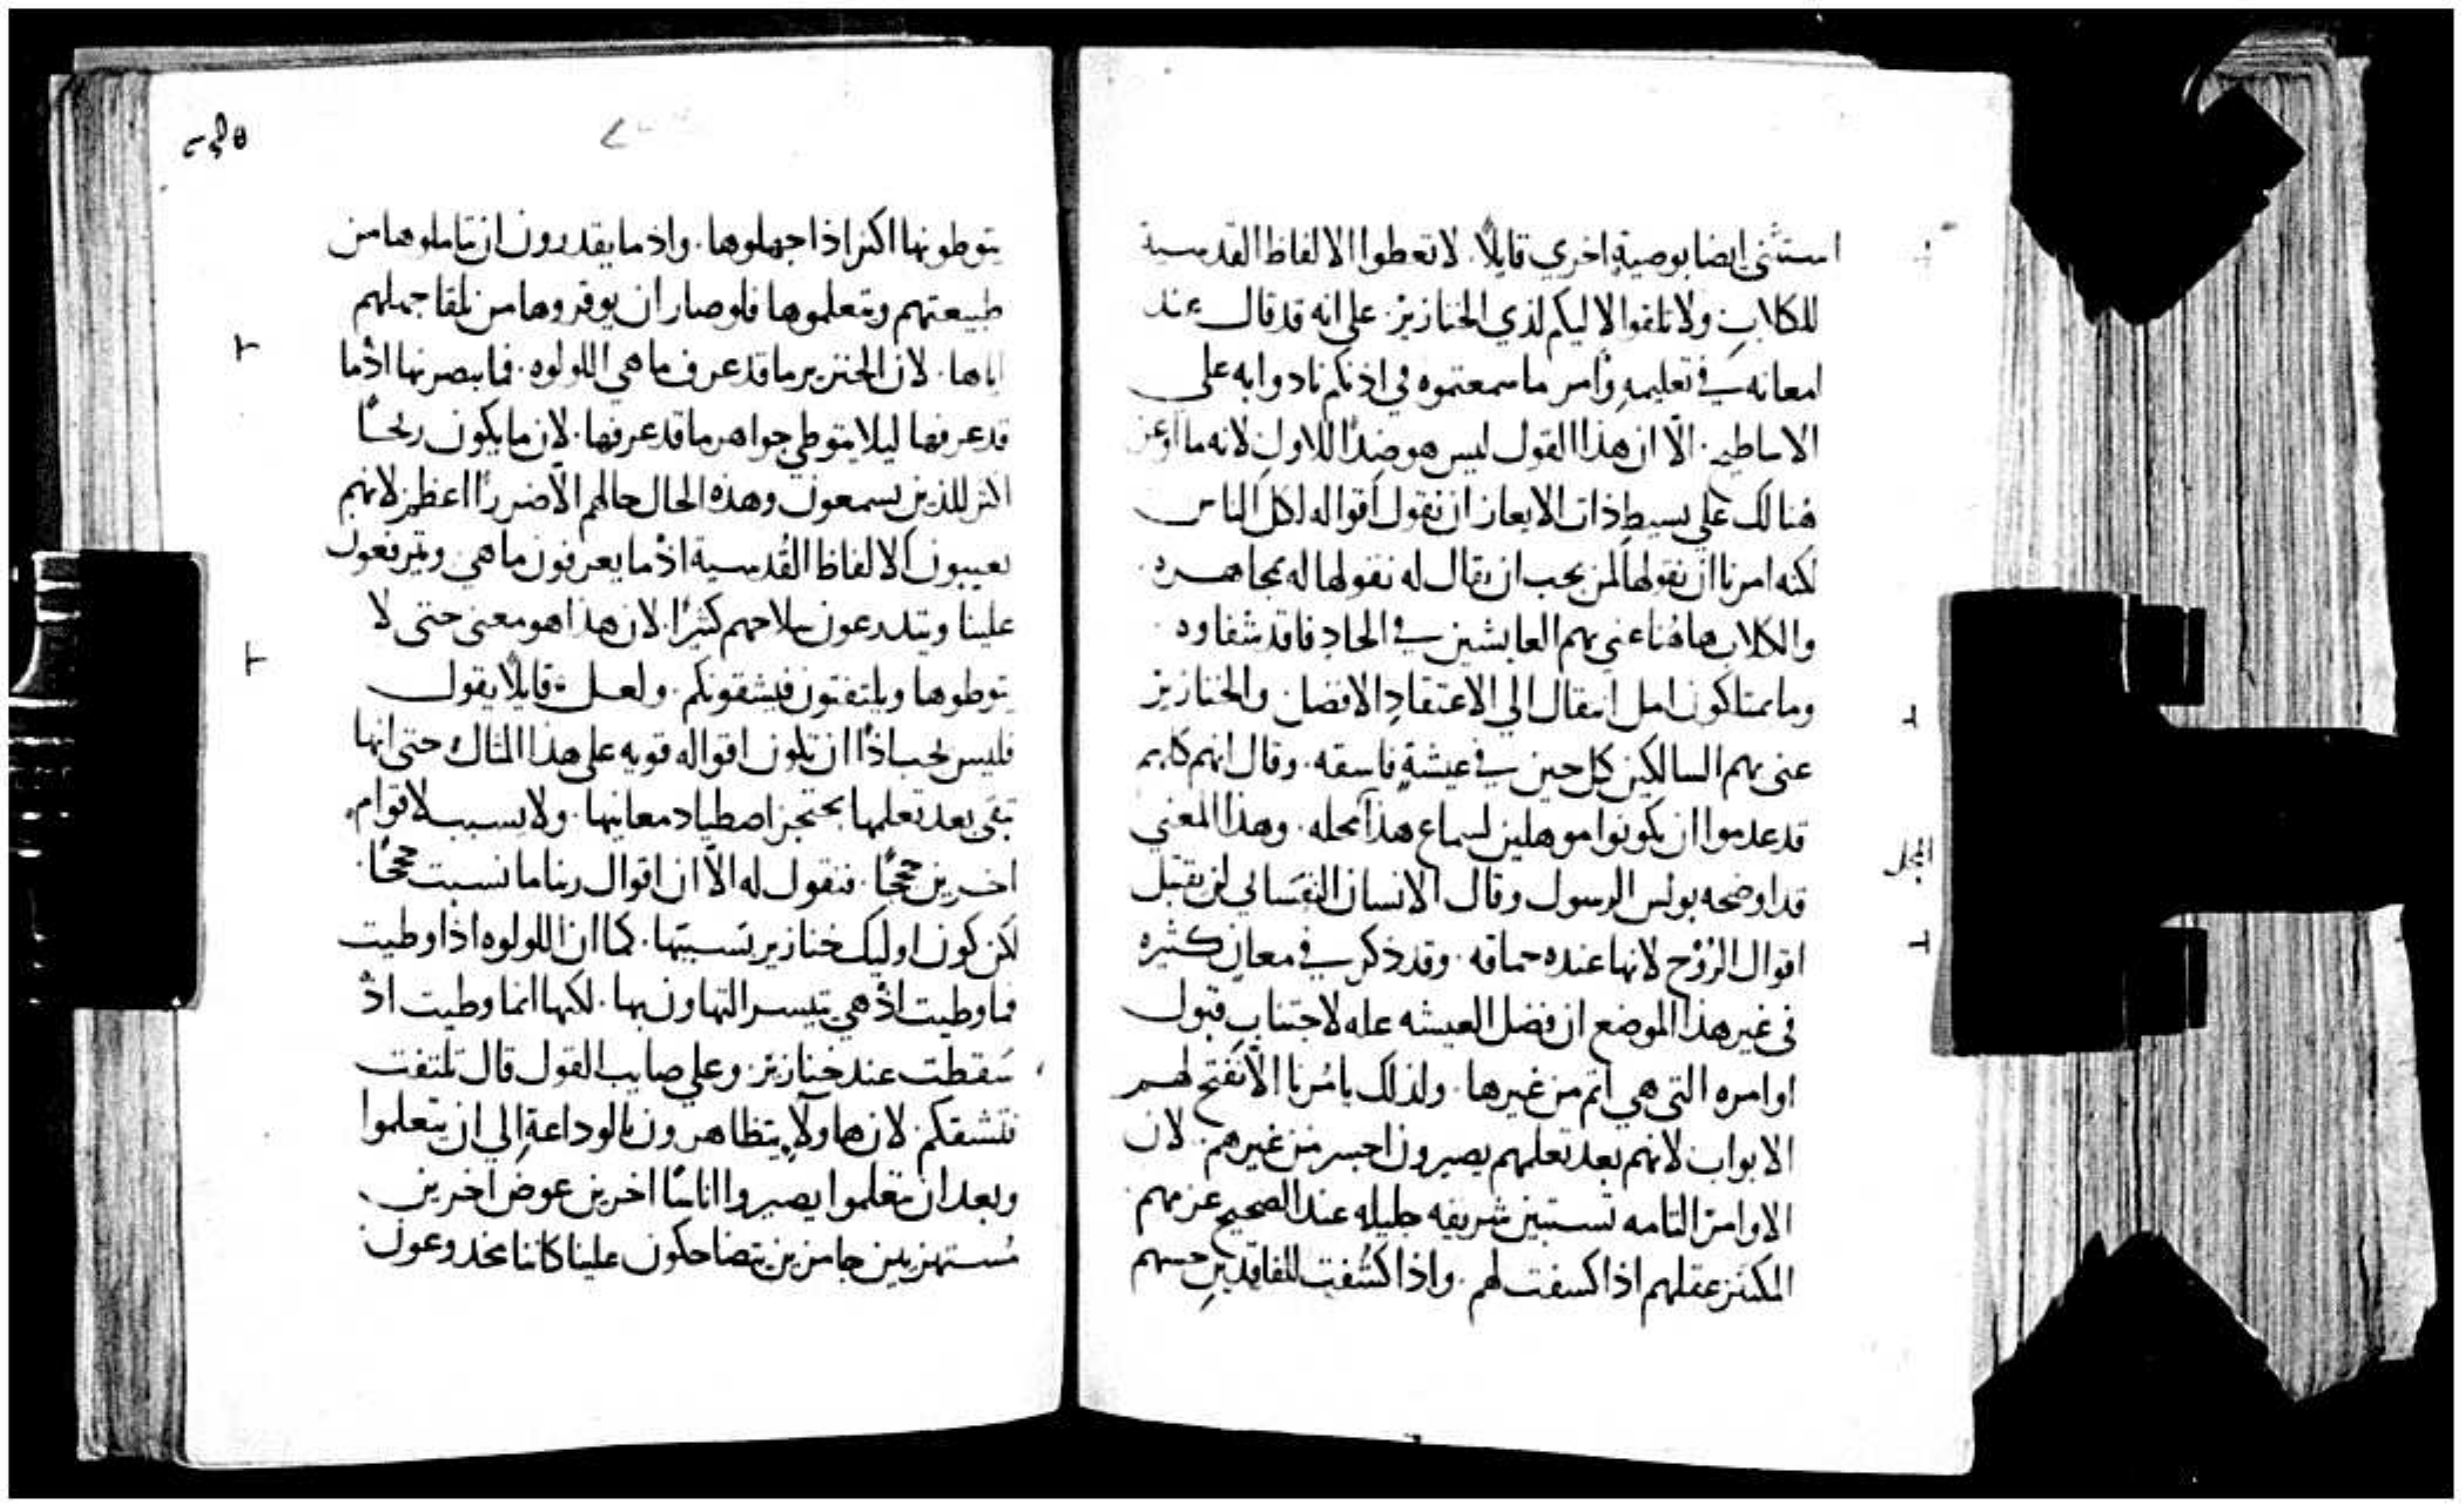 استثني ايضا بوصية اخري قايلًا. لا تعطوا الالفاظ القدسية
للكلابِ ولا تلقوا لاليكم لذي الخنازيز. علي انه قد قال عند
امعانه في تعليمهِ وامر ما سمعتموه في اذنكم نادوا به علي
الاساطيح. الّا ان هذا القول ليس هو ضدًا للاولِ لانه ما اوعز
هُنالك علي بسيط ذات الايعاز ان نقول اقواله لكل الناس
لكنه امرنا ان نقولها لمن يجب ان يقال له نقولها له بمجاهره.
والكلاب هاهُنا عني بهم العايشين في الحادٍ فاقد شفاوه
وما يمتلكون امل انتقال الي الاعتقادِ الافضل والخنازيز
عني بهم السالكين كل حين في عيشةٍ فاسقه. وقال انهم كلهم
قد عدموا ان يكونوا موهلين لسماع هذا محله. وهذا المعني
قد اوضحه بولس الرسول وقال الانسان النفساني لن يقبل
اقوال الرُوْح لانها عنده حماقه. وقد ذكر في معانٍ كثيره
في غير هذا الموضع ان فضل العيشه عله لاجتنابِ قبول
اوامره التي هي اتم من غيرها. ولذلك يامُرنا الّا نفتح لهم
الابواب لانهم بعد تعلمهم يصيرون اجسر من غيرهم. لان
الاوامر التامه تستبين شريفه جليله عند الصحيح عزمهم
المكنز عقلهم اذا كسفت لهم. واذا كُشفت للفاقدينِ حسهم
يتوطونها اكثر اذا جهلوها. واذ ما يقدرون ان يتاملوها من
طبيعتهم ويتعلموها فلو صار ان يوقروها من تلقا جهلهم
اياها. لان الخنزير ما قد عرف ما هي اللولوه. فما يبصرنها اذْما
قد عرفها ليلا يتوطي جواهر ما قد عرفها. لان ما يكون ربحًا
اكثر للذين يسمعون وهذه الحال حالهم الّا ضررًا اعظم لانهم
يعيبون الالفاظ القُدسية اذْما يعرفون ما هي ويترفعون
علينا ويتدرعون بسلاحهم كثيرًا. لان هذا هو معني حتي لا
يتوطوها ويلتفتون فيشقونكم. ولعل قايلًا يقول
فليس يجب اذًا ان تكون اقواله قويه علي هذا المثال حتي انها
تبقي بعد تعلمها يحتجز اصطياد معانيها. ولا يسبب لاقوام
اخرين حججًا. فنقول له الّا ان اقوال ربنا ما نسبت حججًا.
لكن كون اوليك خنازير نسبتها. كما ان اللولوه اذا وطيت
فما وطيت اذْ هي يتيسر التهاون بها. لكنها انما وطيت اذْ
سَقطت عند خنازيز. وعلي صايب القول قال تلتفت
فتشقكم. لان هاولاءِ يتظاهرون بالوداعةِ الي ان يتعلموا
وبعد ان يتعلموا يصيروا اناسًا اخرين عوض اخرين
مُستهزيين جامزين يتضاحكون علينا كاننا مخدوعون